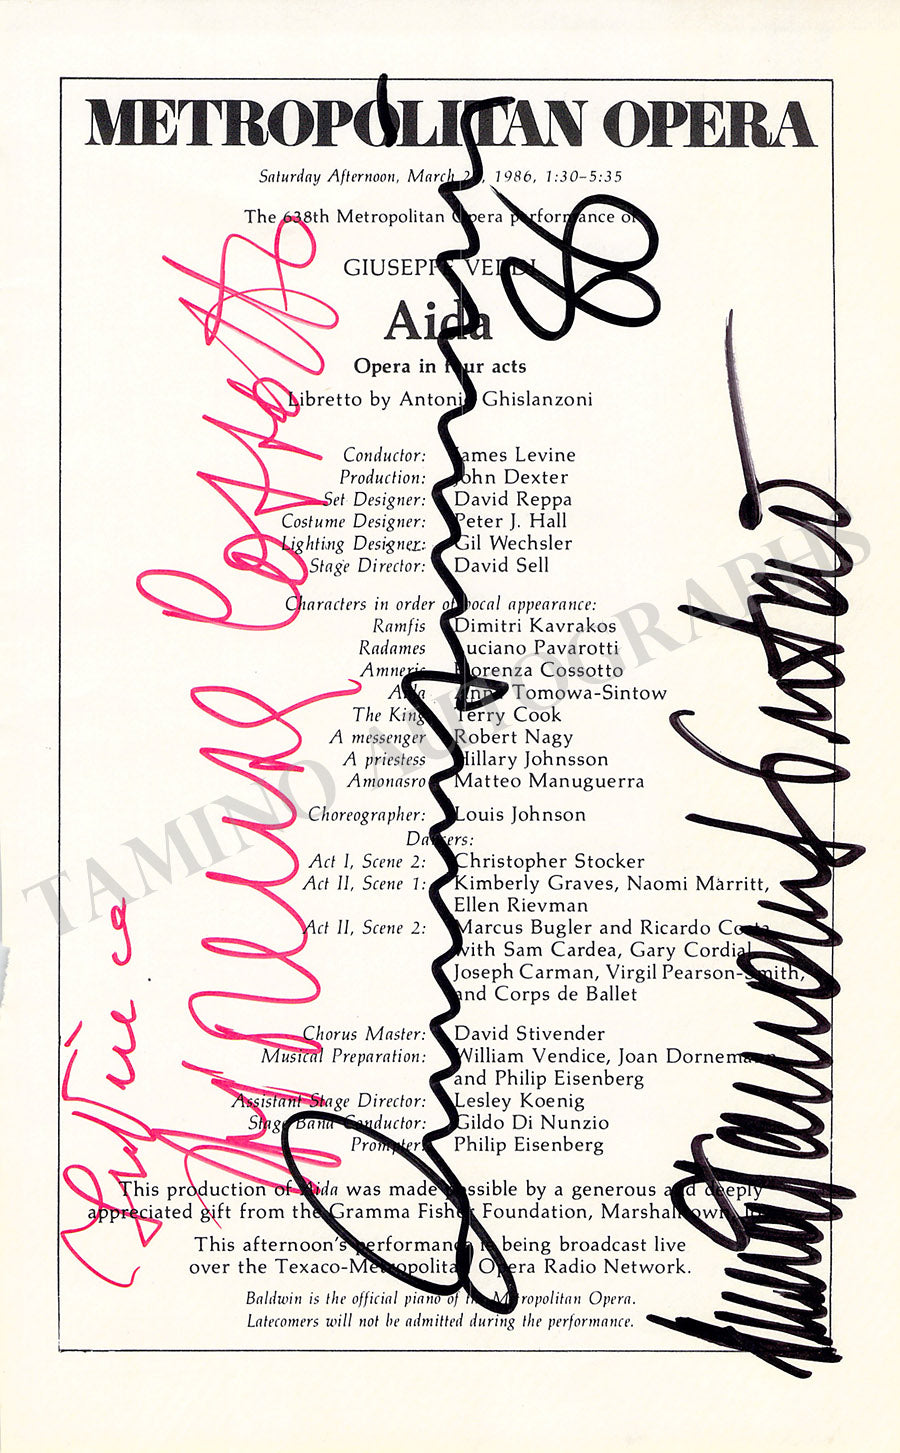 METROPOLITAN OPERA
Saturday Afternoon, March 2, 1986, 1:30–5:35
The 638th Metropolitan Opera performance of
GIUSEPPE VERDI
Aida
Opera in four acts
Libretto by Antonio Ghislanzoni
Conductor: James Levine
Production: John Dexter
Set Designer: David Reppa
Costume Designer: Peter J. Hall
Lighting Designer: Gil Wechsler
Stage Director: David Sell
Characters in order of vocal appearance:
Ramfis Dimitri Kavrakos
Radames Luciano Pavarotti
Amneris Fiorenza Cossotto
Aida Anna Tomowa-Sintow
The King Terry Cook
A messenger Robert Nagy
A priestess Hillary Johnsson
Amonasro Matteo Manuguerra
Choreographer: Louis Johnson
Dancers:
Act I, Scene 2: Christopher Stocker
Act II, Scene 1: Kimberly Graves, Naomi Marritt,
Ellen Rievman
Act II, Scene 2: Marcus Bugler and Ricardo Costa
with Sam Cardea, Gary Cordial,
Joseph Carman, Virgil Pearson-Smith,
and Corps de Ballet
Chorus Master: David Stivender
Musical Preparation: William Vendice, Joan Dornemann
and Philip Eisenberg
Assistant Stage Director: Lesley Koenig
Stage Band Conductor: Gildo Di Nunzio
Prompter: Philip Eisenberg
This production of Aida was made possible by a generous and deeply
appreciated gift from the Gramma Fisher Foundation, Marshalltown,
This afternoon's performance is being broadcast live
over the Texaco-Metropolitan Opera Radio Network.
Baldwin is the official piano of the Metropolitan Opera.
Latecomers will not be admitted during the performance.
Cossotto
86
TAMINO AUTOGRAPHS